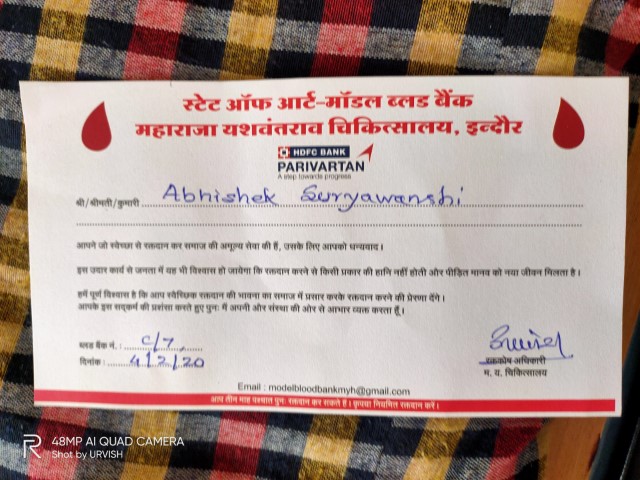 स्टेट ऑफ आर्ट-मॉडल ब्लड बैंक
महाराजा यशवंतराव चिकित्सालय, इन्दौर
HDFC BANK
PARIVARTAN
A step towards progress
श्री/श्रीमती/कुमारी Abhishek Suryawanshi
आपने जो स्वेच्छा से रक्तदान कर समाज की अमूल्य सेवा की हैं, उसके लिए आपको धन्यवाद।
इस उदार कार्य से जनता में यह भी विश्वास हो जायेगा कि रक्तदान करने से किसी प्रकार की हानि नहीं होती और पीड़ित मानव को नया जीवन मिलता है।
हमें पूर्ण विश्वास है कि आप स्वैच्छिक रक्तदान की भावना का समाज में प्रसार करके रक्तदान करने की प्रेरणा देंगे।
आपके इस सद्कर्म की प्रशंसा करते हुए पुनः मैं अपनी और संस्था की ओर से आभार व्यक्त करता हूँ।
ब्लड बैंक नं. : C/7
दिनांक : 4/2/20
रक्तकोष अधिकारी
म. य. चिकित्सालय
Email : modelbloodbankmyh@gmail.com
आप तीन माह पश्चात पुनः रक्तदान कर सकते हैं। कृपया नियमित रक्तदान करें।
48MP AI QUAD CAMERA
Shot by URVISH